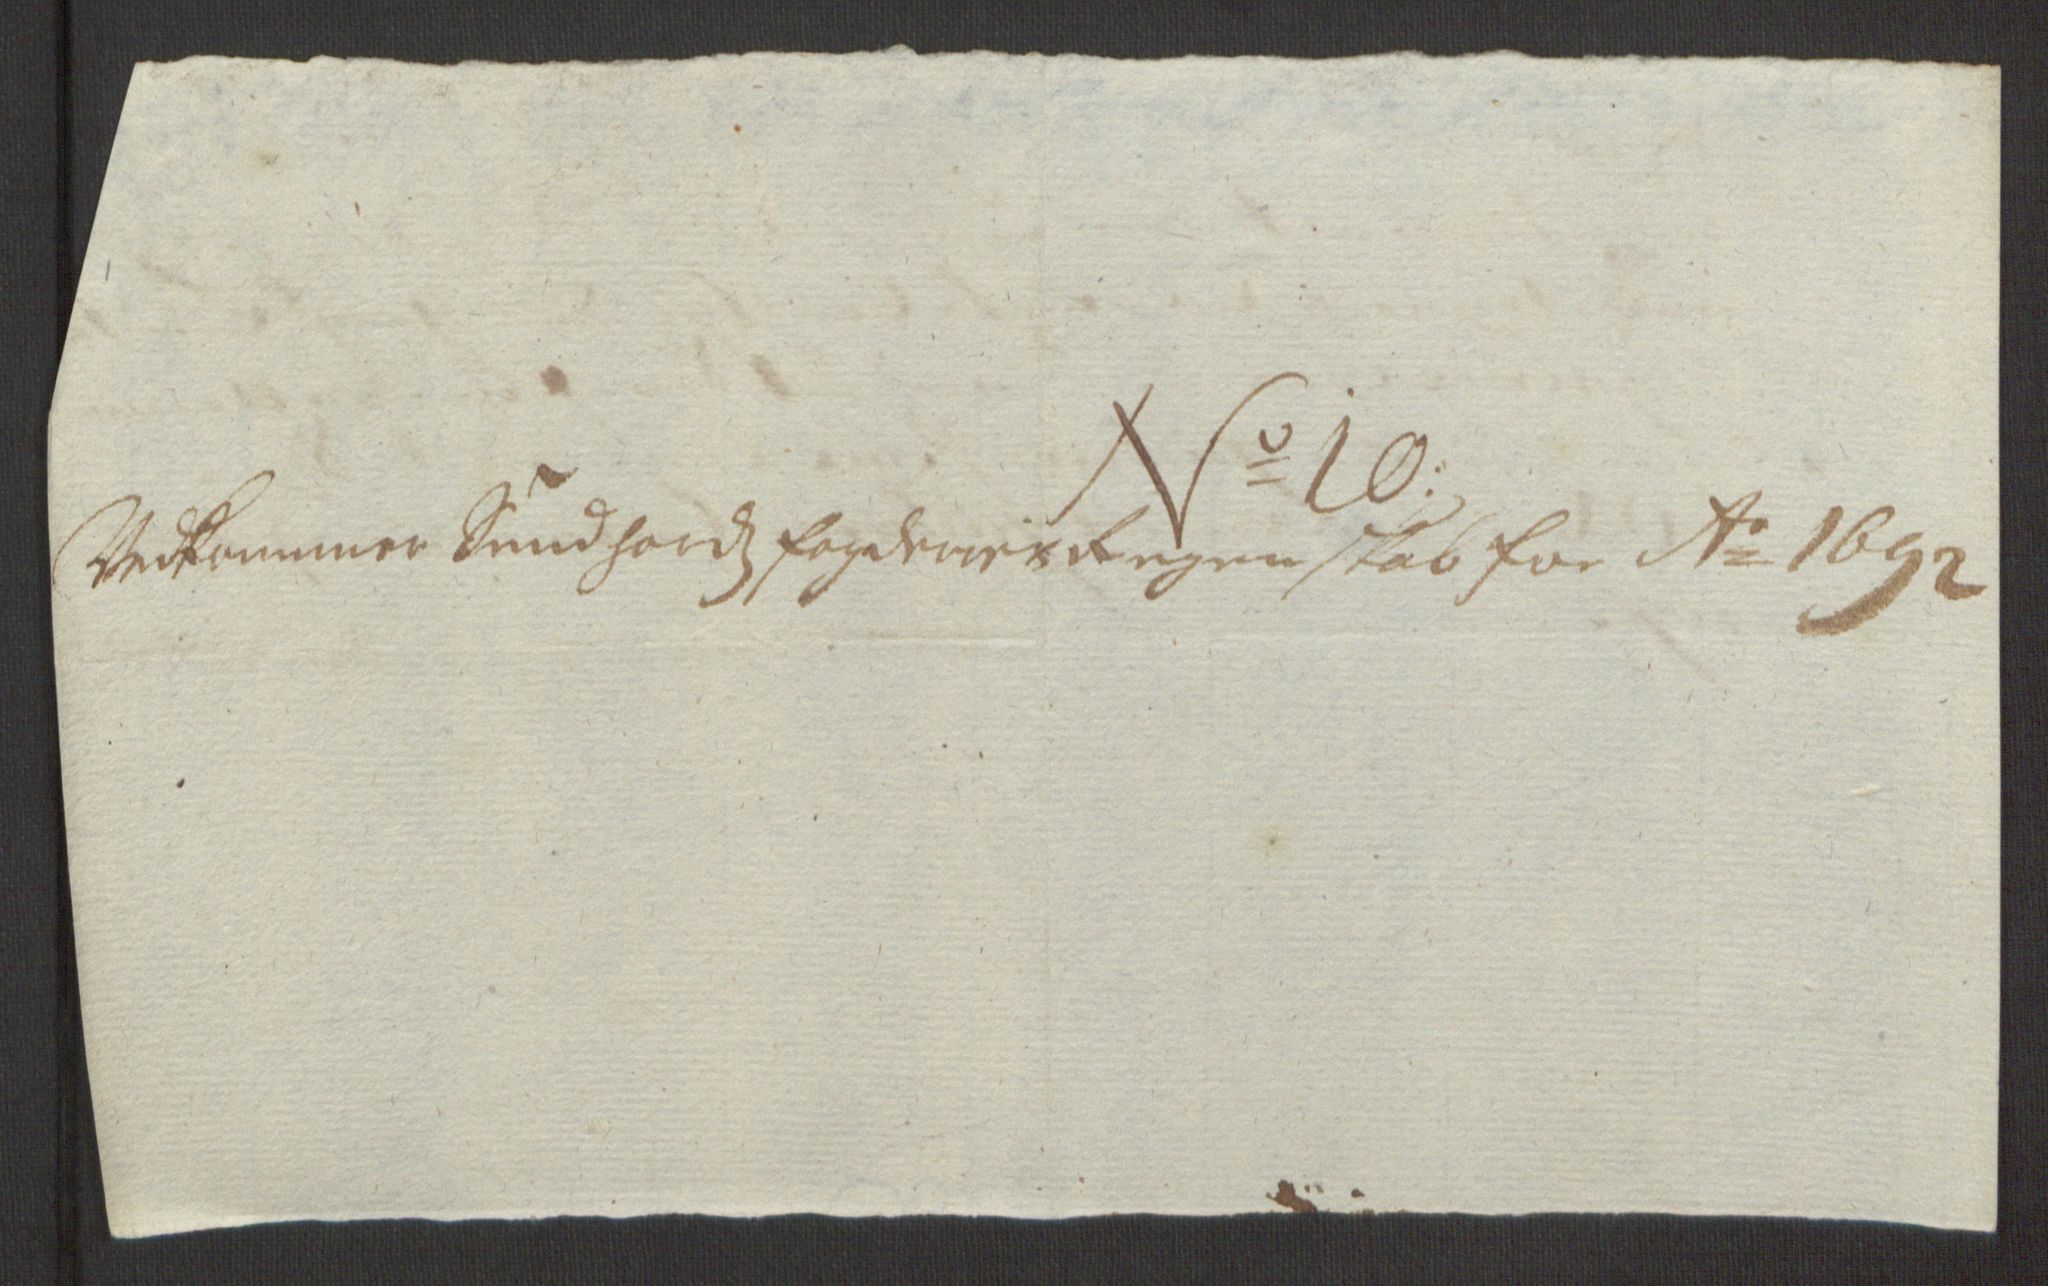 No 10.
Vedkommer Sundhordz fogderies Regenskab for Ao 1692